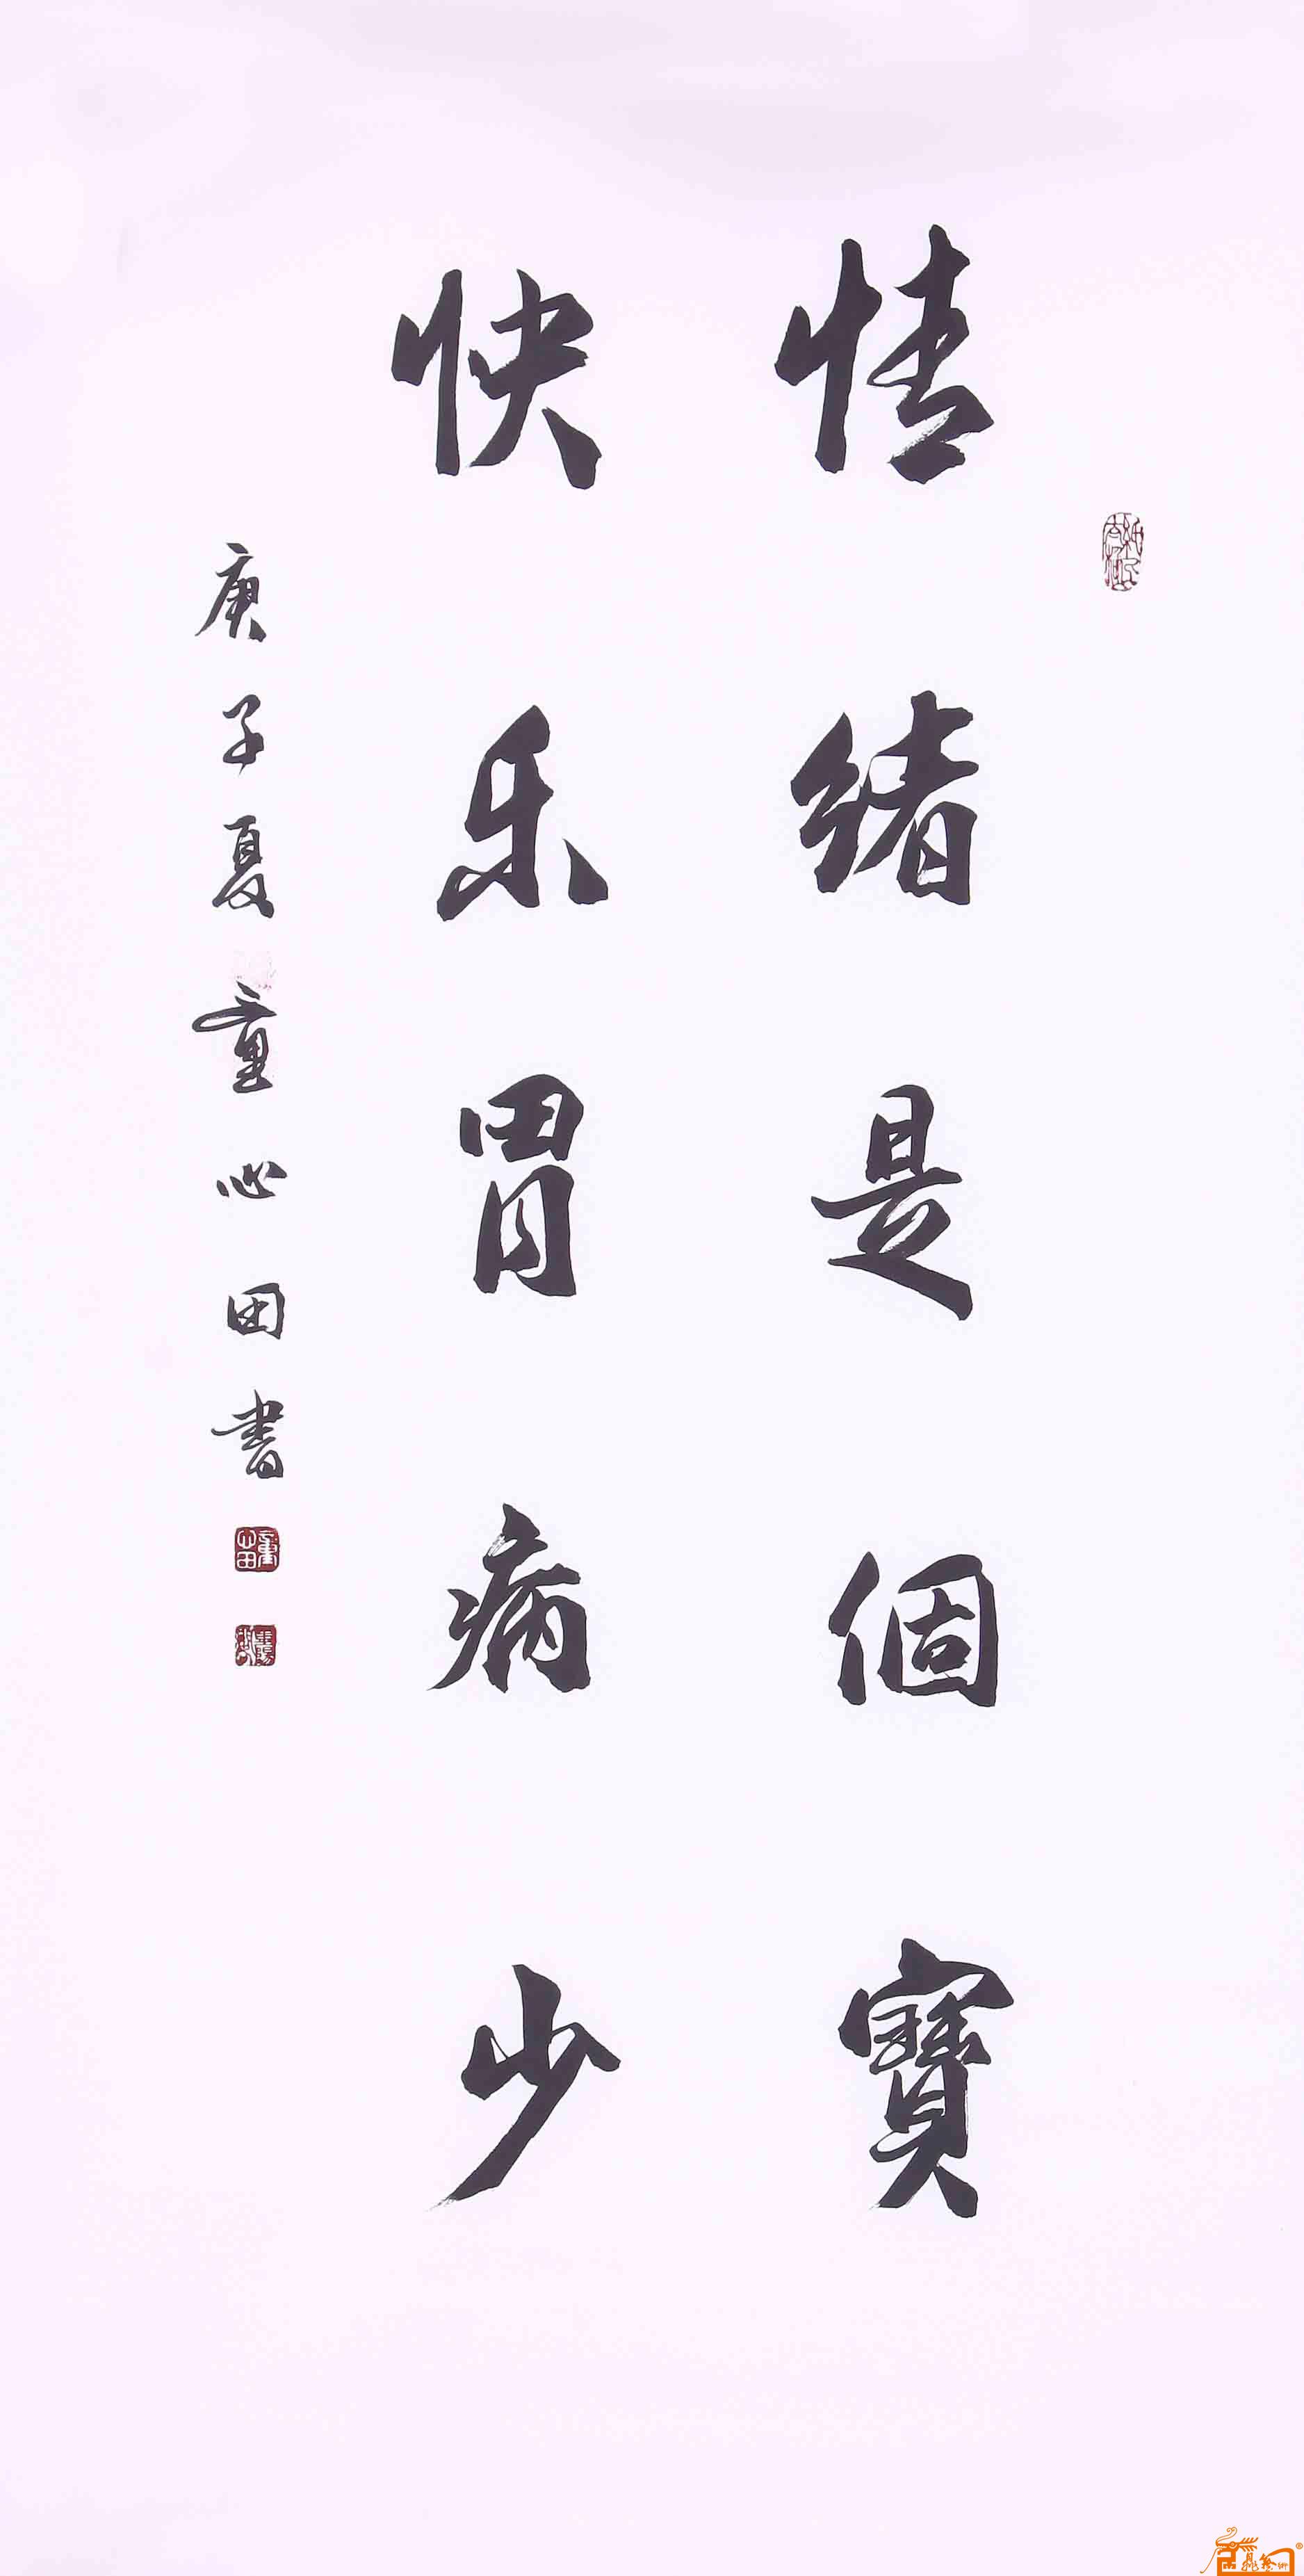 情緒是個寶
快乐胃病少
庚子夏童心田書